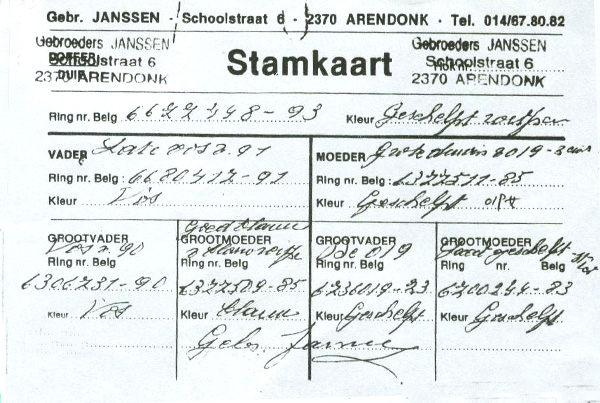 Gebr. JANSSEN - Schoolstraat 6 - 2370 ARENDONK - Tel. 014/67.80.82
Gebroeders JANSSEN
Schoolstraat 6
2370 ARENDONK
DOFFER
DUIF
Stamkaart
Gebroeders JANSSEN
Schoolstraat 6
Hok nr.
2370 ARENDONK
Ring nr. Belg 6622448-93 Kleur Geschelpt
VADER 91
Ring nr. Belg : 6680412-91
Kleur Vos
MOEDER 019
Ring nr. Belg : 6322511-85
Kleur Geschelpt
GROOTVADER Vos 90
Ring nr. Belg
6306231-90
Kleur Vos
Goed Blauw
GROOTMOEDER
Ring nr. Belg
6322509-85
Kleur Blauw
GROOTVADER De 019
Ring nr. Belg
6236019-23
Kleur Geschelpt
GROOTMOEDER geschelpt
Ring nr. Belg
6200244-83
Kleur Geschelpt
Gebr. Janssen